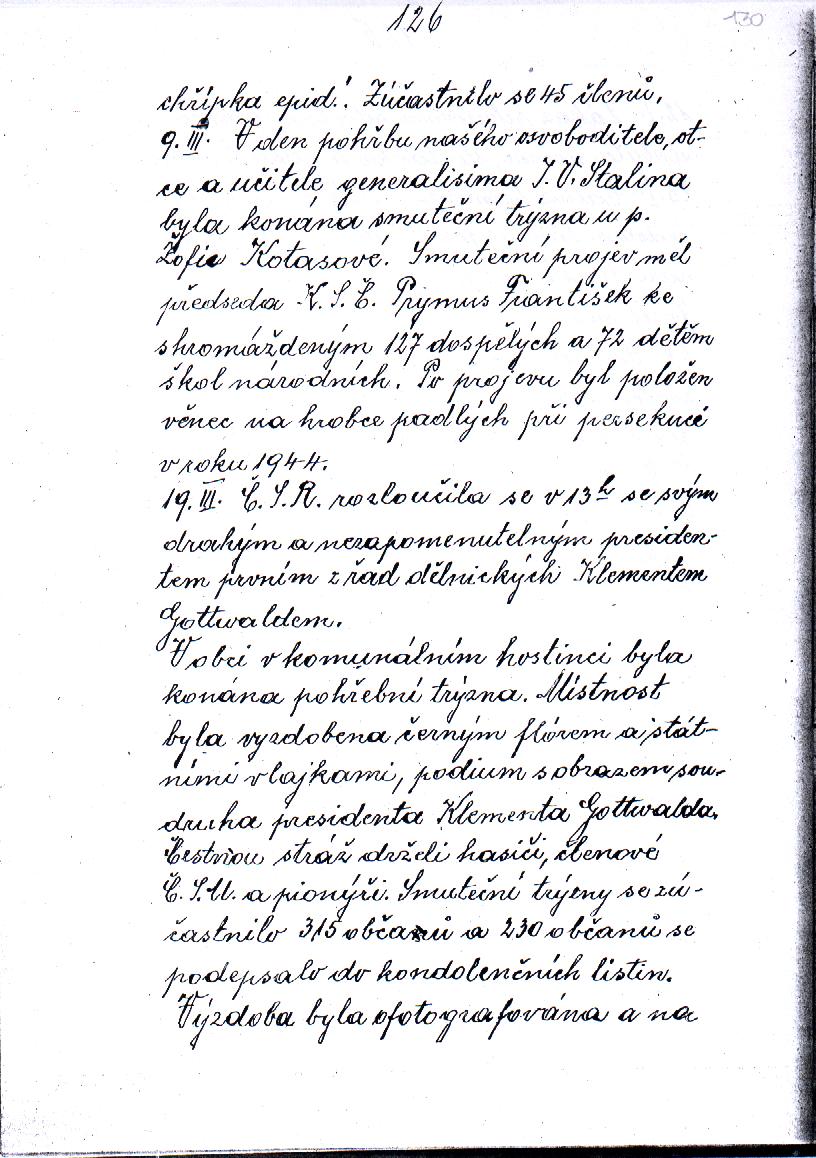 126
130
chřípka epid.! Zúčastnilo se 45 členů.
9. III. V den pohřbu našého osvoboditele, ot-
ce a učitele generalisima J. V. Stalina
byla konána smuteční trýzna u p.
Žofie Kotasové. Smuteční projev měl
předseda K. S. Č. Prymus František ke
shromážděným 127 dospělých a 72 dětěm
škol národních. Po projevu byl položen
věnec na hrobce padlých při persekucé
v roku 1944.
19. III. Č. S. R. rozloučila se v 13h se svým
drahým a nezapomenutelným presiden-
tem prvním z řad dělnických Klementem
Gottwaldem.
V obci v komunálním hostinci byla
konána pohřební trýzna. Místnost
byla vyzdobena černým flórem a stát-
ními vlajkami, podium s obrazem sou-
druha presidenta Klementa Gottwalda.
Čestnou stráž drželi hasiči, členové
Č. S. M. a pionýři. Smuteční trýzny se zú-
častnilo 315 občanů a 230 občanů se
podepsalo do kondolenčních listin.
Výzdoba byla ofotografována a na